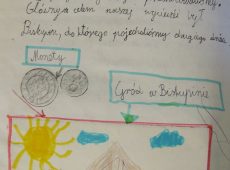 celem naszej wycieczki był
Biskupin, do którego pojechaliśmy drugiego dnia
Monety
Gród w Biskupinie